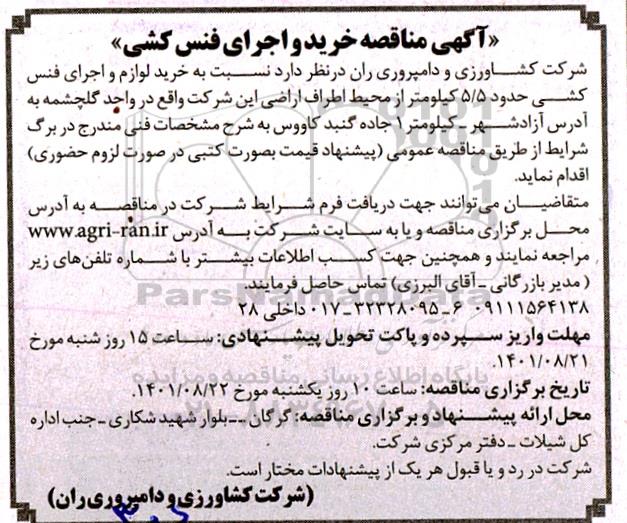 «آگهی مناقصه خرید و اجرای فنس کشی»
شرکت کشاورزی و دامپروری ران درنظر دارد نسبت به خرید لوازم و اجرای فنس
کشی حدود ۵/۵ کیلومتر از محیط اطراف اراضی این شرکت واقع در واحد گلچشمه به
آدرس آزادشهر ـ کیلومتر ۱ جاده گنبد کاووس به شرح مشخصات فنی مندرج در برگ
شرایط از طریق مناقصه عمومی (پیشنهاد قیمت بصورت کتبی در صورت لزوم حضوری)
اقدام نماید.
متقاضیان می‌توانند جهت دریافت فرم شرایط شرکت در مناقصه به آدرس
محل برگزاری مناقصه و یا به سایت شرکت به آدرس www.agri-ran.ir
مراجعه نمایند و همچنین جهت کسب اطلاعات بیشتر با شماره تلفن‌های زیر
(مدیر بازرگانی ـ آقای البرزی) تماس حاصل فرمایند.
۰۹۱۱۱۵۶۴۱۳۸ ـ ۶ ـ ۳۲۳۲۸۰۹۵ ـ ۰۱۷ داخلی ۲۸
مهلت واریز سپرده و پاکت تحویل پیشنهادی: ساعت ۱۵ روز شنبه مورخ
۱۴۰۱/۰۸/۲۱.
تاریخ برگزاری مناقصه: ساعت ۱۰ روز یکشنبه مورخ ۱۴۰۱/۰۸/۲۲.
محل ارائه پیشنهاد و برگزاری مناقصه: گرگان ـ بلوار شهید شکاری ـ جنب اداره
کل شیلات ـ دفتر مرکزی شرکت.
شرکت در رد و یا قبول هر یک از پیشنهادات مختار است.
(شرکت کشاورزی و دامپروری ران)
ParsNamadData
پایگاه اطلاع رسانی مناقصه و مزایده